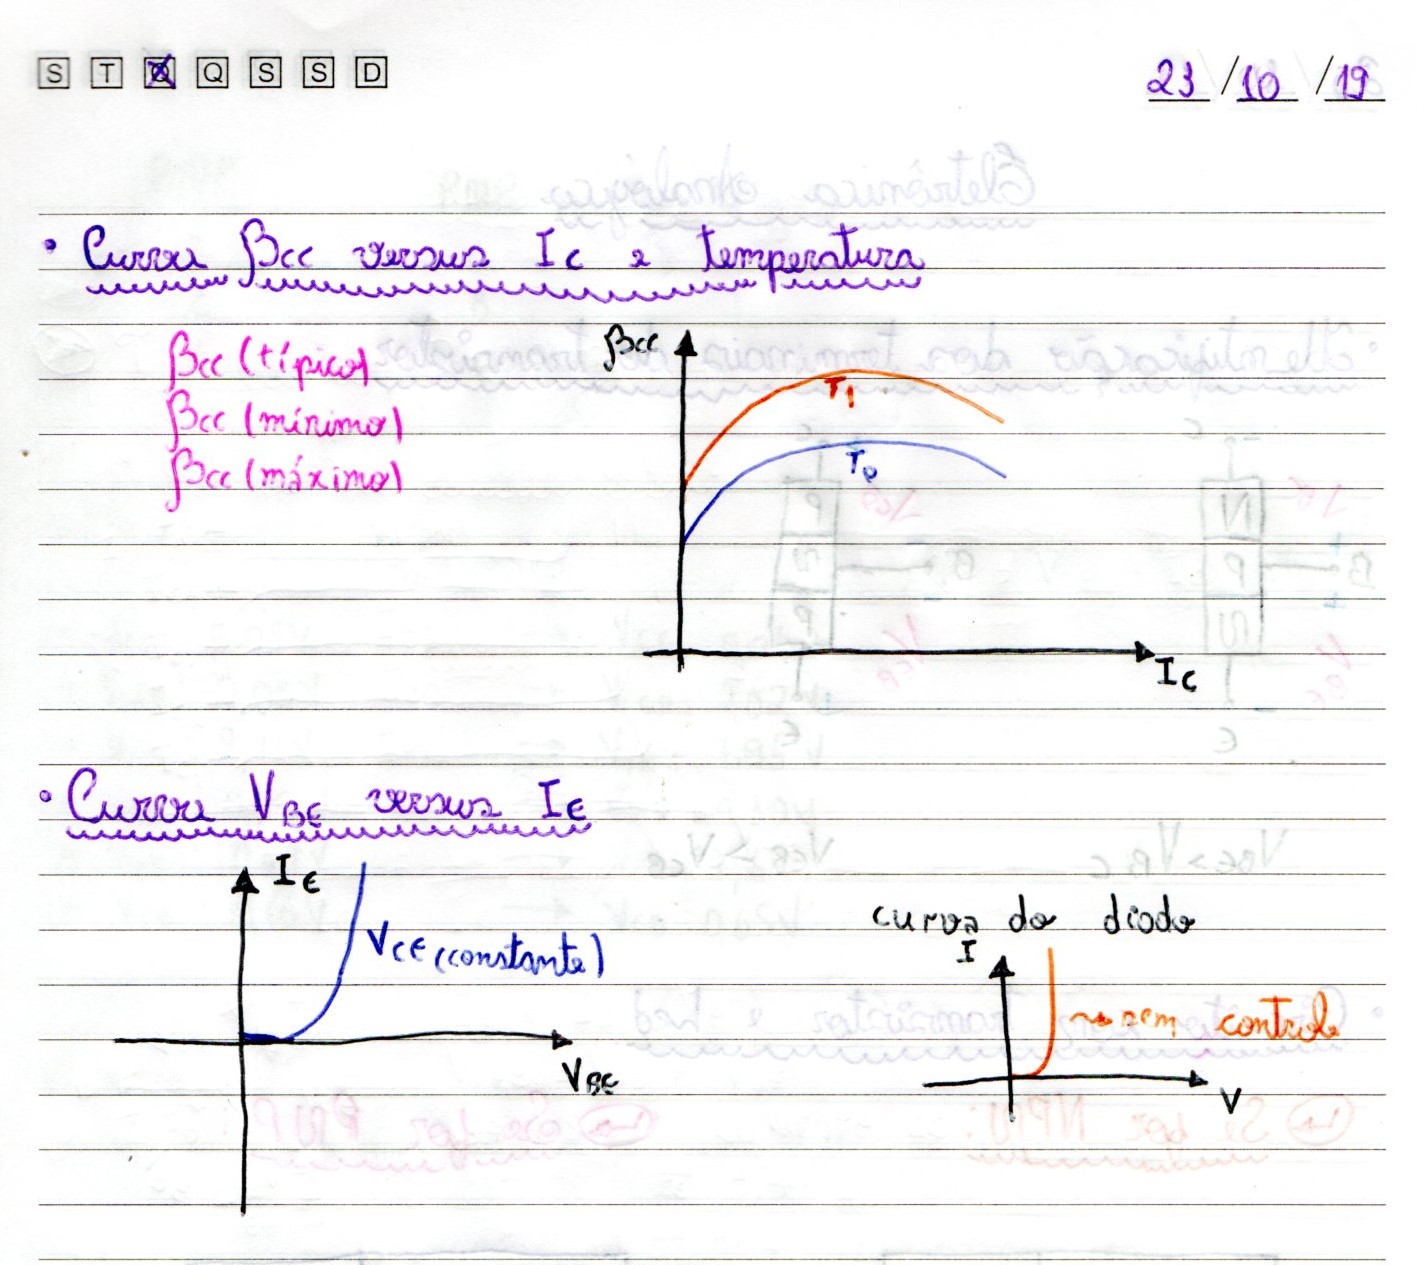 S T Q Q S S D
23/10/19
• Curva βcc versus Ic e temperatura
βcc (típico)
βcc (mínimo)
βcc (máximo)
βcc
T1
T2
Ic
• Curva VBE versus IE
IE
VCE (constante)
VBE
curva do diodo
I
sem controle
V